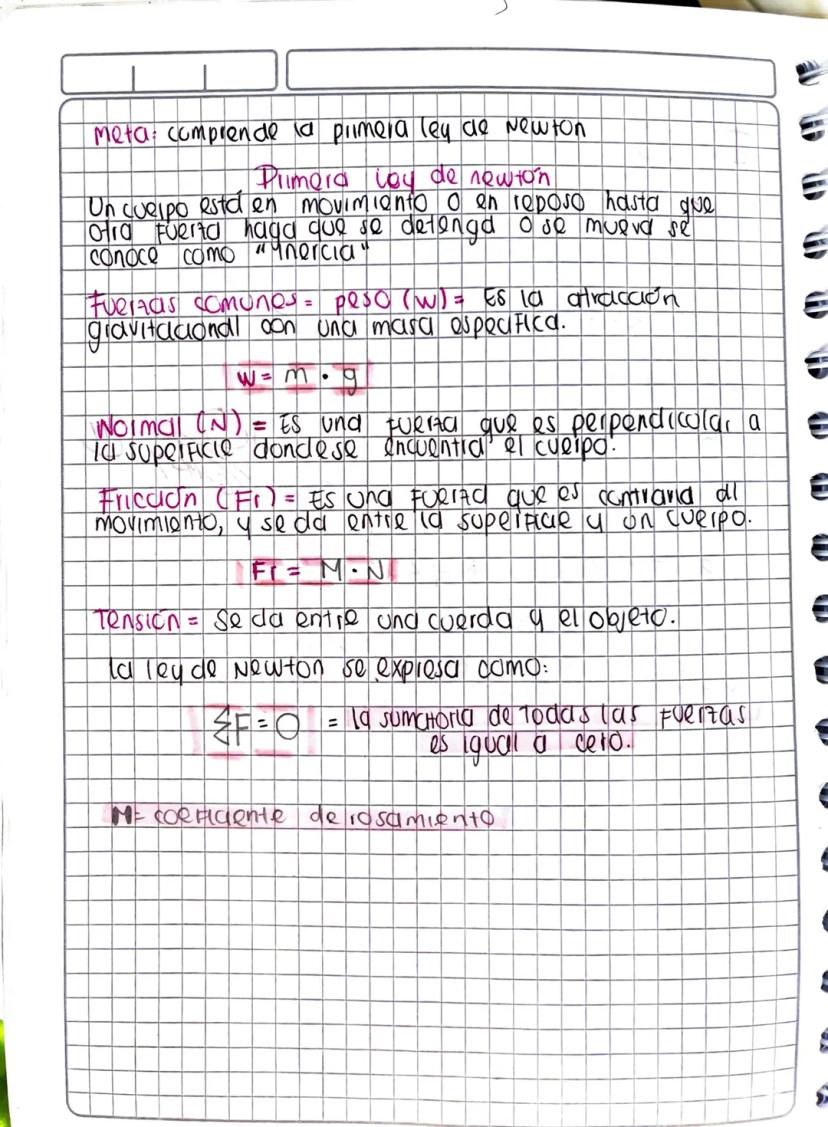 Meta: comprende la primera ley de Newton
Primera ley de newton
Un cuerpo está en movimiento o en reposo hasta que
otra fuerza haga que se detenga o se mueva se
conoce como "inercia"
Fuerzas comunes = peso (w) = Es la atracción
gravitacional con una masa especifica.
w = m · g
Normal (N) = Es una fuerza que es perpendicolar a
la superficie donde se encuentra el cuerpo.
Fricción (Fr) = Es una fuerza que es contraria al
movimiento, y se da entre la superficie y un cuerpo.
Fr = M · N
Tensión = Se da entre una cuerda y el objeto.
La ley de Newton se expresa como:
ΣF = 0 = la sumatoria de todas las fuerzas
es igual a cero.
M = coeficiente de rosamiento